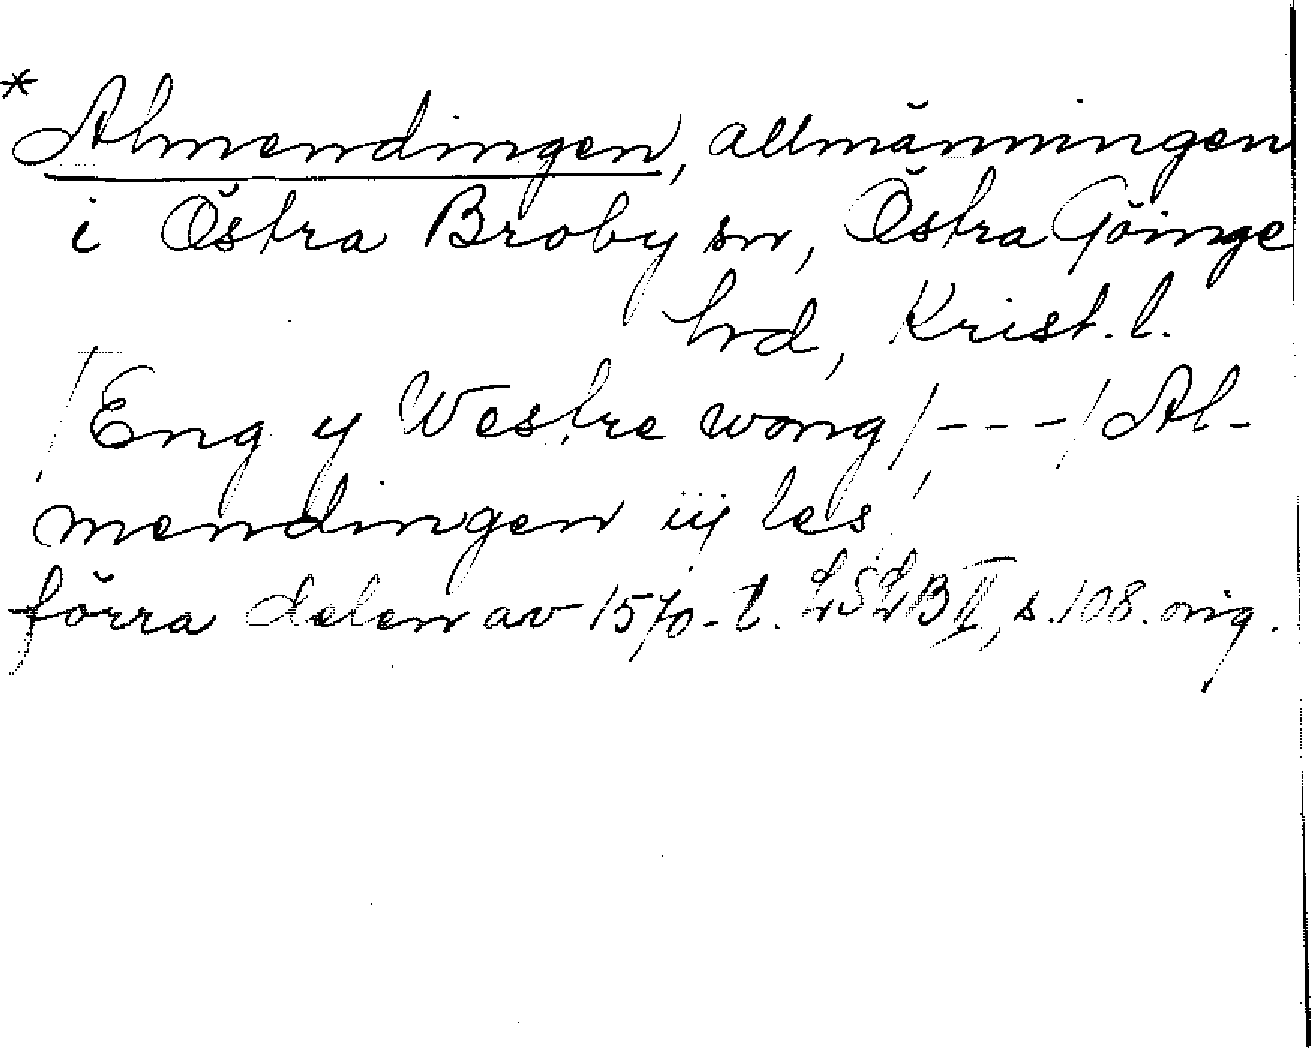 * Almendingen, allmänningen
i Östra Broby sn, Östra Göinge
hrd, Krist. l.
/Eng y Westre wong/, - - - / Al-
mendingen iij les
förra delen av 1570-t. LSLB II, s. 108. orig.